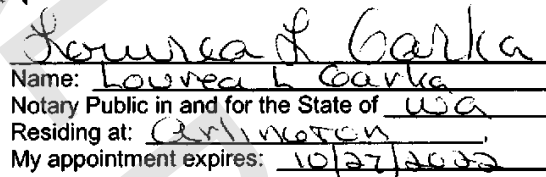 Lourrea L Garka
Name: Lourea L Garka
Notary Public in and for the State of WA
Residing at: Arlington,
My appointment expires: 10/27/2022